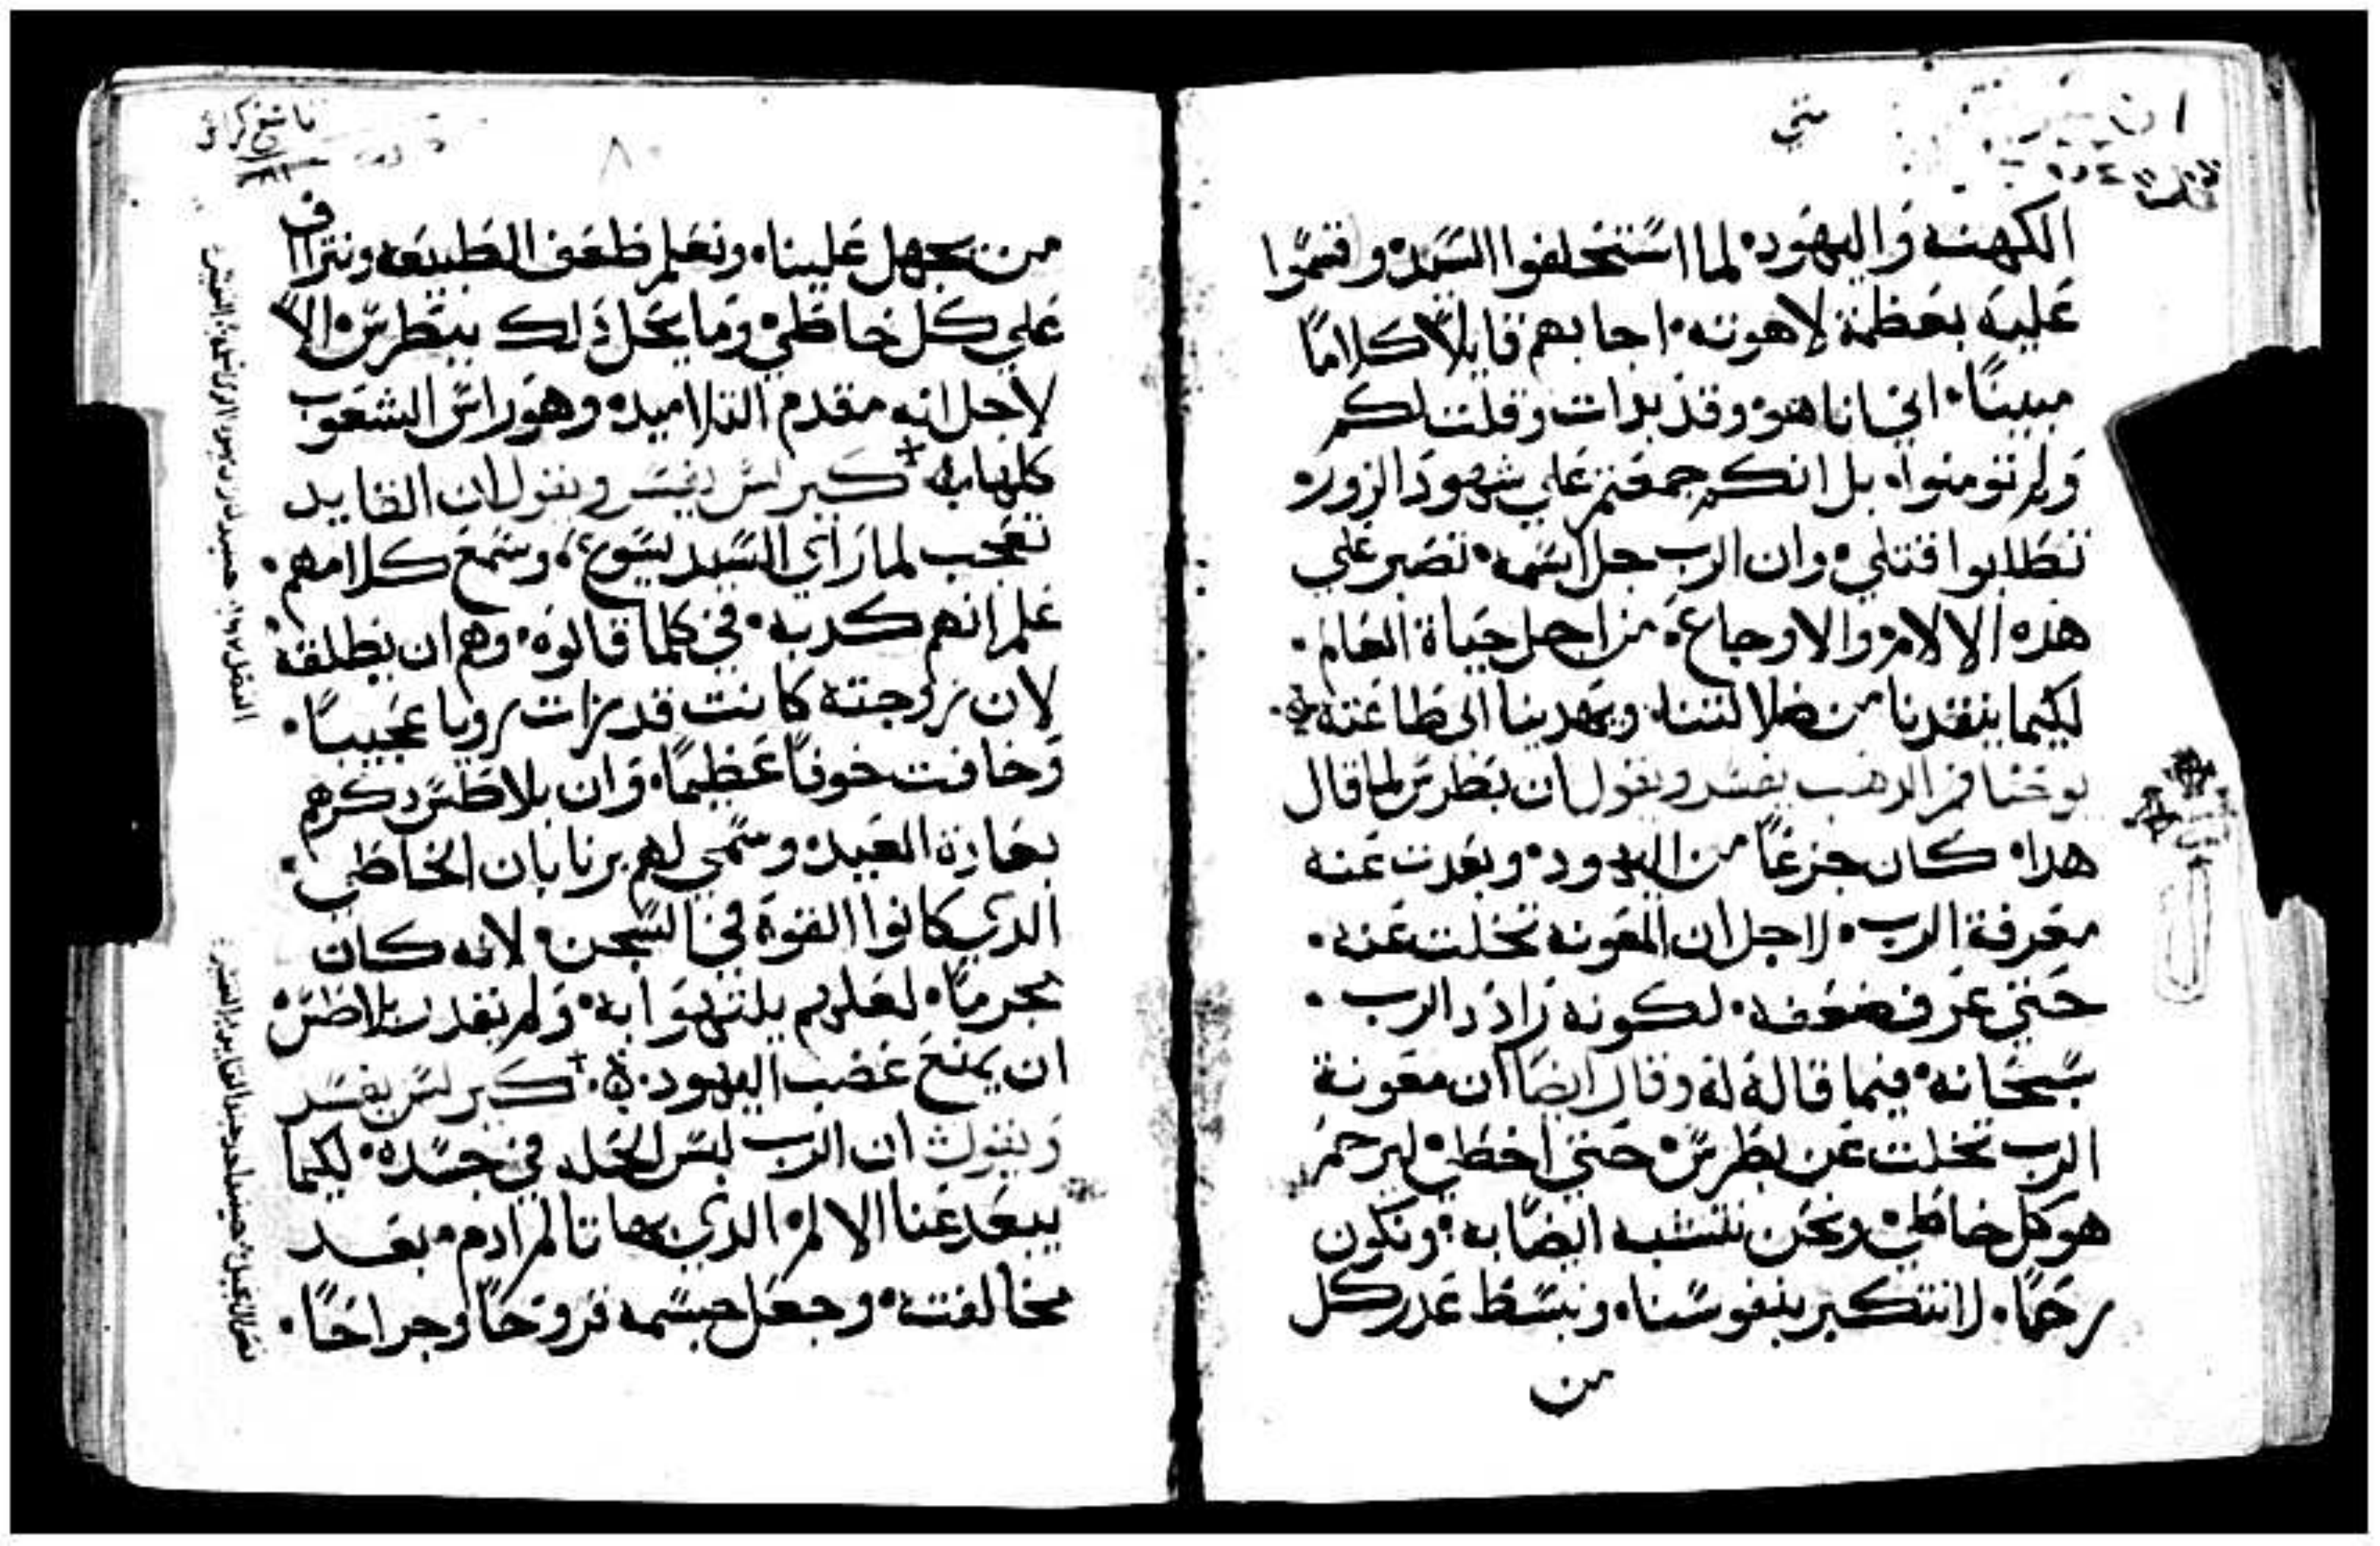 متي
الكهنه واليهود لما استحلفوا السيد وقسموا
عليه بعظمة لاهوته اجابهم قايلاً كلاماً
مبيناً اني انا هو وقد بدات وقلت لكم
ولم تومنوا بل انكم جمعتم علي شهود الزور
تطلبوا قتلي وان الرب جل اسمه تصبر علي
هذه الالام والاوجاع من اجل حياة العالم
لكيما ينقدنا من ضلالتنا ويهدينا الى طاعته
يوحنا فم الدهب يفسر ويقول ان بطرس لما قال
هدا كان جزعاً من اليهود وبعدت عنه
معرفة الرب لاجل ان المعونه تخلت عنه
حتي عرف ضعفه لكونه زاد الرب
سبحانه فيما قاله له وقال ايضا ان معونة
الرب تخلت عن بطرس حتي اخطي ليرحم
هو كل خاطي ونحن نتشبه ايضا به ونكون
رحماً لا نتكبر بنفوسنا ونبسط عدر كل
من
٨
من يجهل علينا ونعلم ظعف الطبيعه ونتراف
علي كل خاطي وما يحل ذلك ببطرس الا
لاجل انه مقدم التلاميد وهو راس الشعوب
كلها كيرلس يفسر ويقول ان القايد
تعجب لما راي السيد يسوع وسمع كلامهم
علم انهم كدبه في كلما قالوه وهم ان يطلقه
لان زوجته كانت قد رات رويا عجيباً
وخافت خوفاً عظيماً وان بلاطس دكرهم
بعادة العيد وسمي لهم برنابان الخاطي
الدي كانوا القوه في السجن لانه كان
مجرماً لعلهم يلتهوا به ولم يقدر بلاطس
ان يمنع غضب اليهود كيرلس يفسر
ويقول ان الرب لبس الخل في جسده لكيما
يبعد عنا الالم الدي بها تالم ادم بعد
مخالفته وجعل جسمه قروحاً وجراحاً